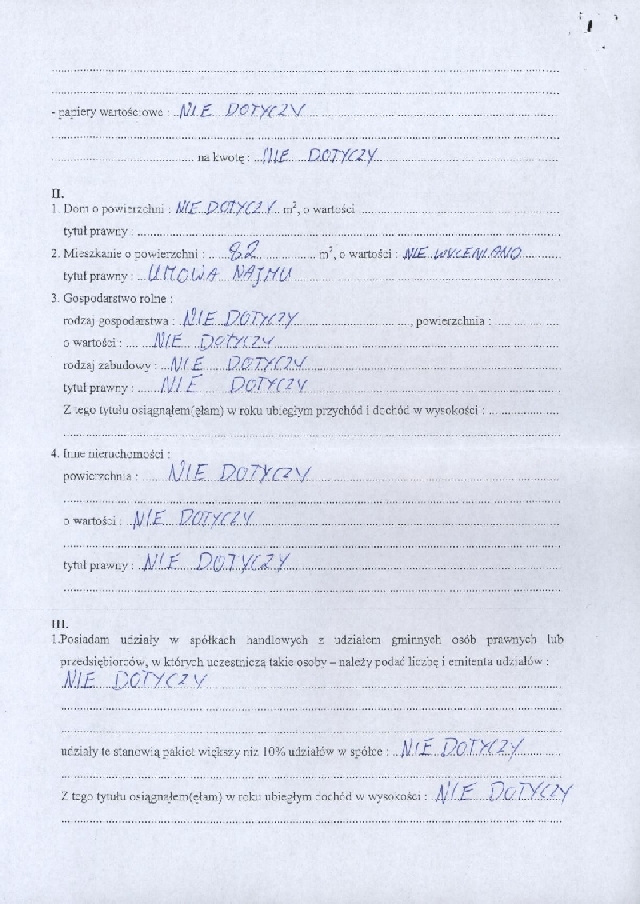 - papiery wartościowe : NIE DOTYCZY
na kwotę : NIE DOTYCZY
II.
1. Dom o powierzchni : NIE DOTYCZY m², o wartości
tytuł prawny :
2. Mieszkanie o powierzchni : 82 m², o wartości : NIE WYCENIANO
tytuł prawny : UMOWA NAJMU
3. Gospodarstwo rolne :
rodzaj gospodarstwa : NIE DOTYCZY , powierzchnia :
o wartości : NIE DOTYCZY
rodzaj zabudowy : NIE DOTYCZY
tytuł prawny : NIE DOTYCZY
Z tego tytułu osiągnąłem(ęłam) w roku ubiegłym przychód i dochód w wysokości :
4. Inne nieruchomości :
powierzchnia : NIE DOTYCZY
o wartości : NIE DOTYCZY
tytuł prawny : NIE DOTYCZY
III.
1.Posiadam udziały w spółkach handlowych z udziałem gminnych osób prawnych lub
przedsiębiorców, w których uczestniczą takie osoby – należy podać liczbę i emitenta udziałów :
NIE DOTYCZY
udziały te stanowią pakiet większy niż 10% udziałów w spółce : NIE DOTYCZY
Z tego tytułu osiągnąłem(ęłam) w roku ubiegłym dochód w wysokości : NIE DOTYCZY